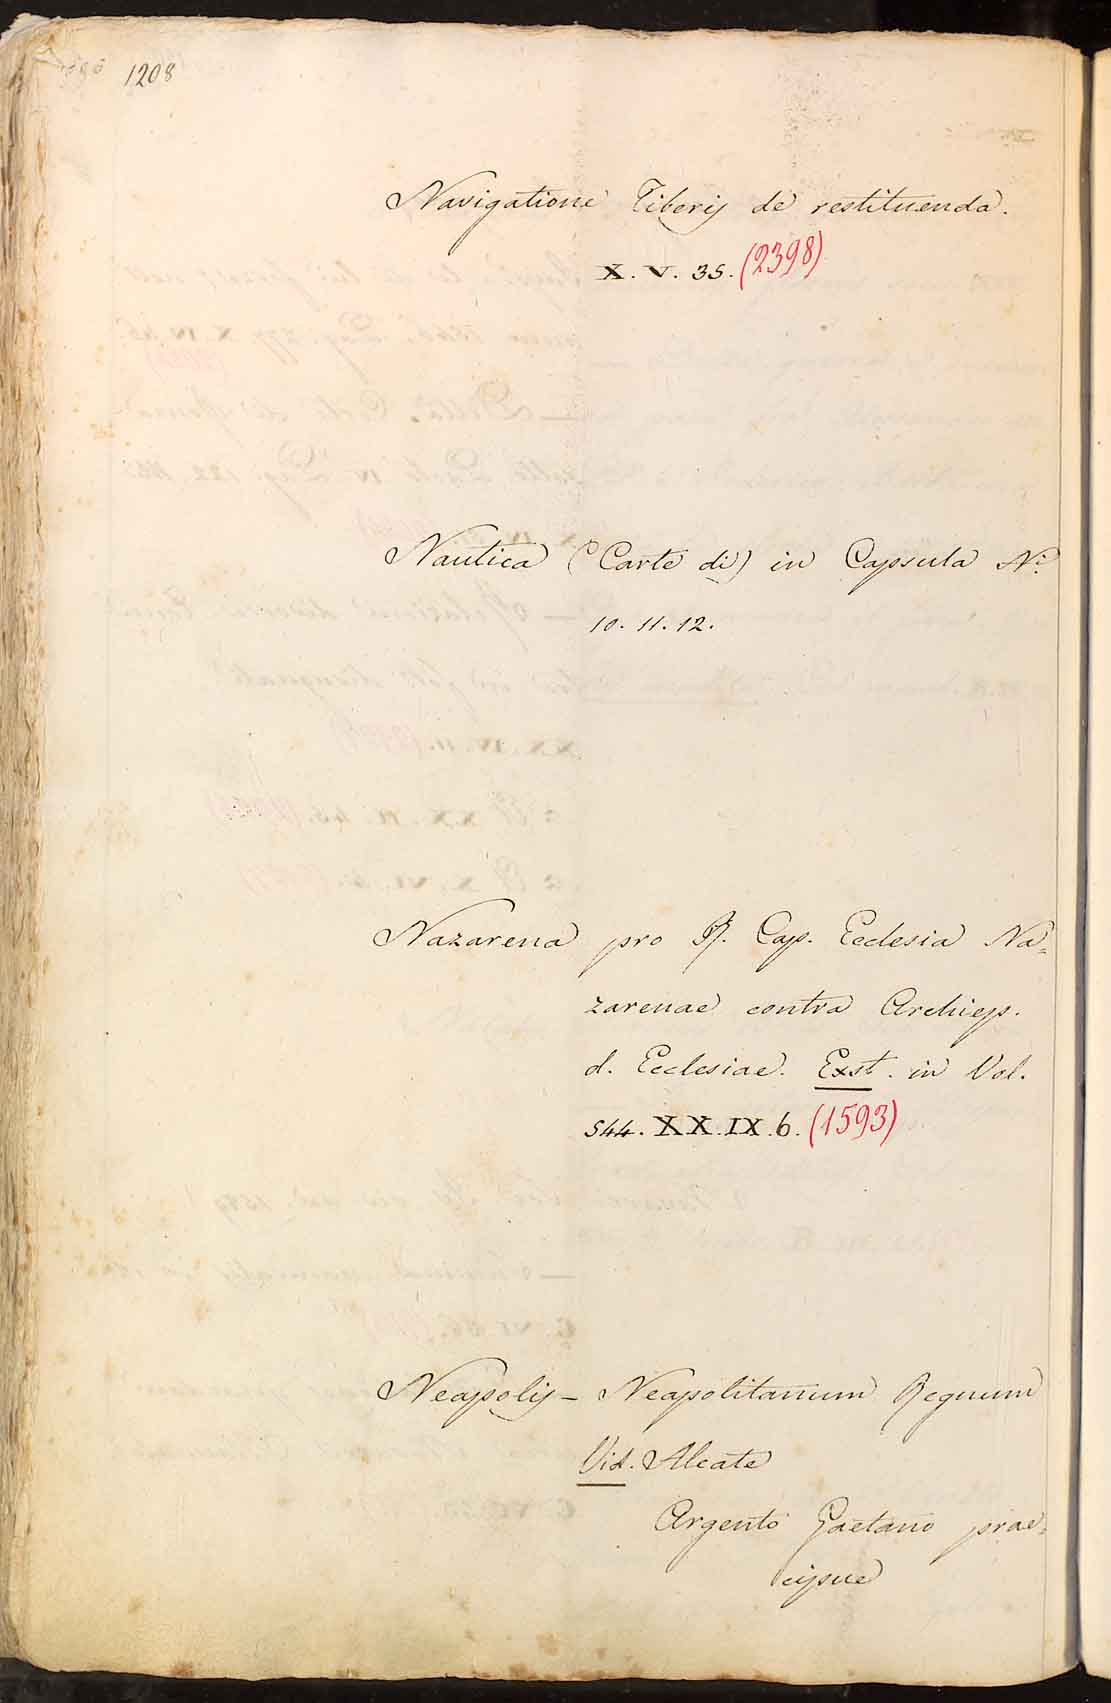 1208
Navigatione Tiberis de restituenda.
X. V. 35. (2398)
Nautica (Carte di) in Capsula N.i
10. 11. 12.
Nazarena pro R. Cap. Ecclesia Na=
zarenae contra Archiep.
d. Ecclesiae. Exst. in Vol.
544. XX. IX. 6. (1593)
Neapolis - Neapolitanum Regnum
Vid. Alcate
Argento Gaetano prae=
cipue